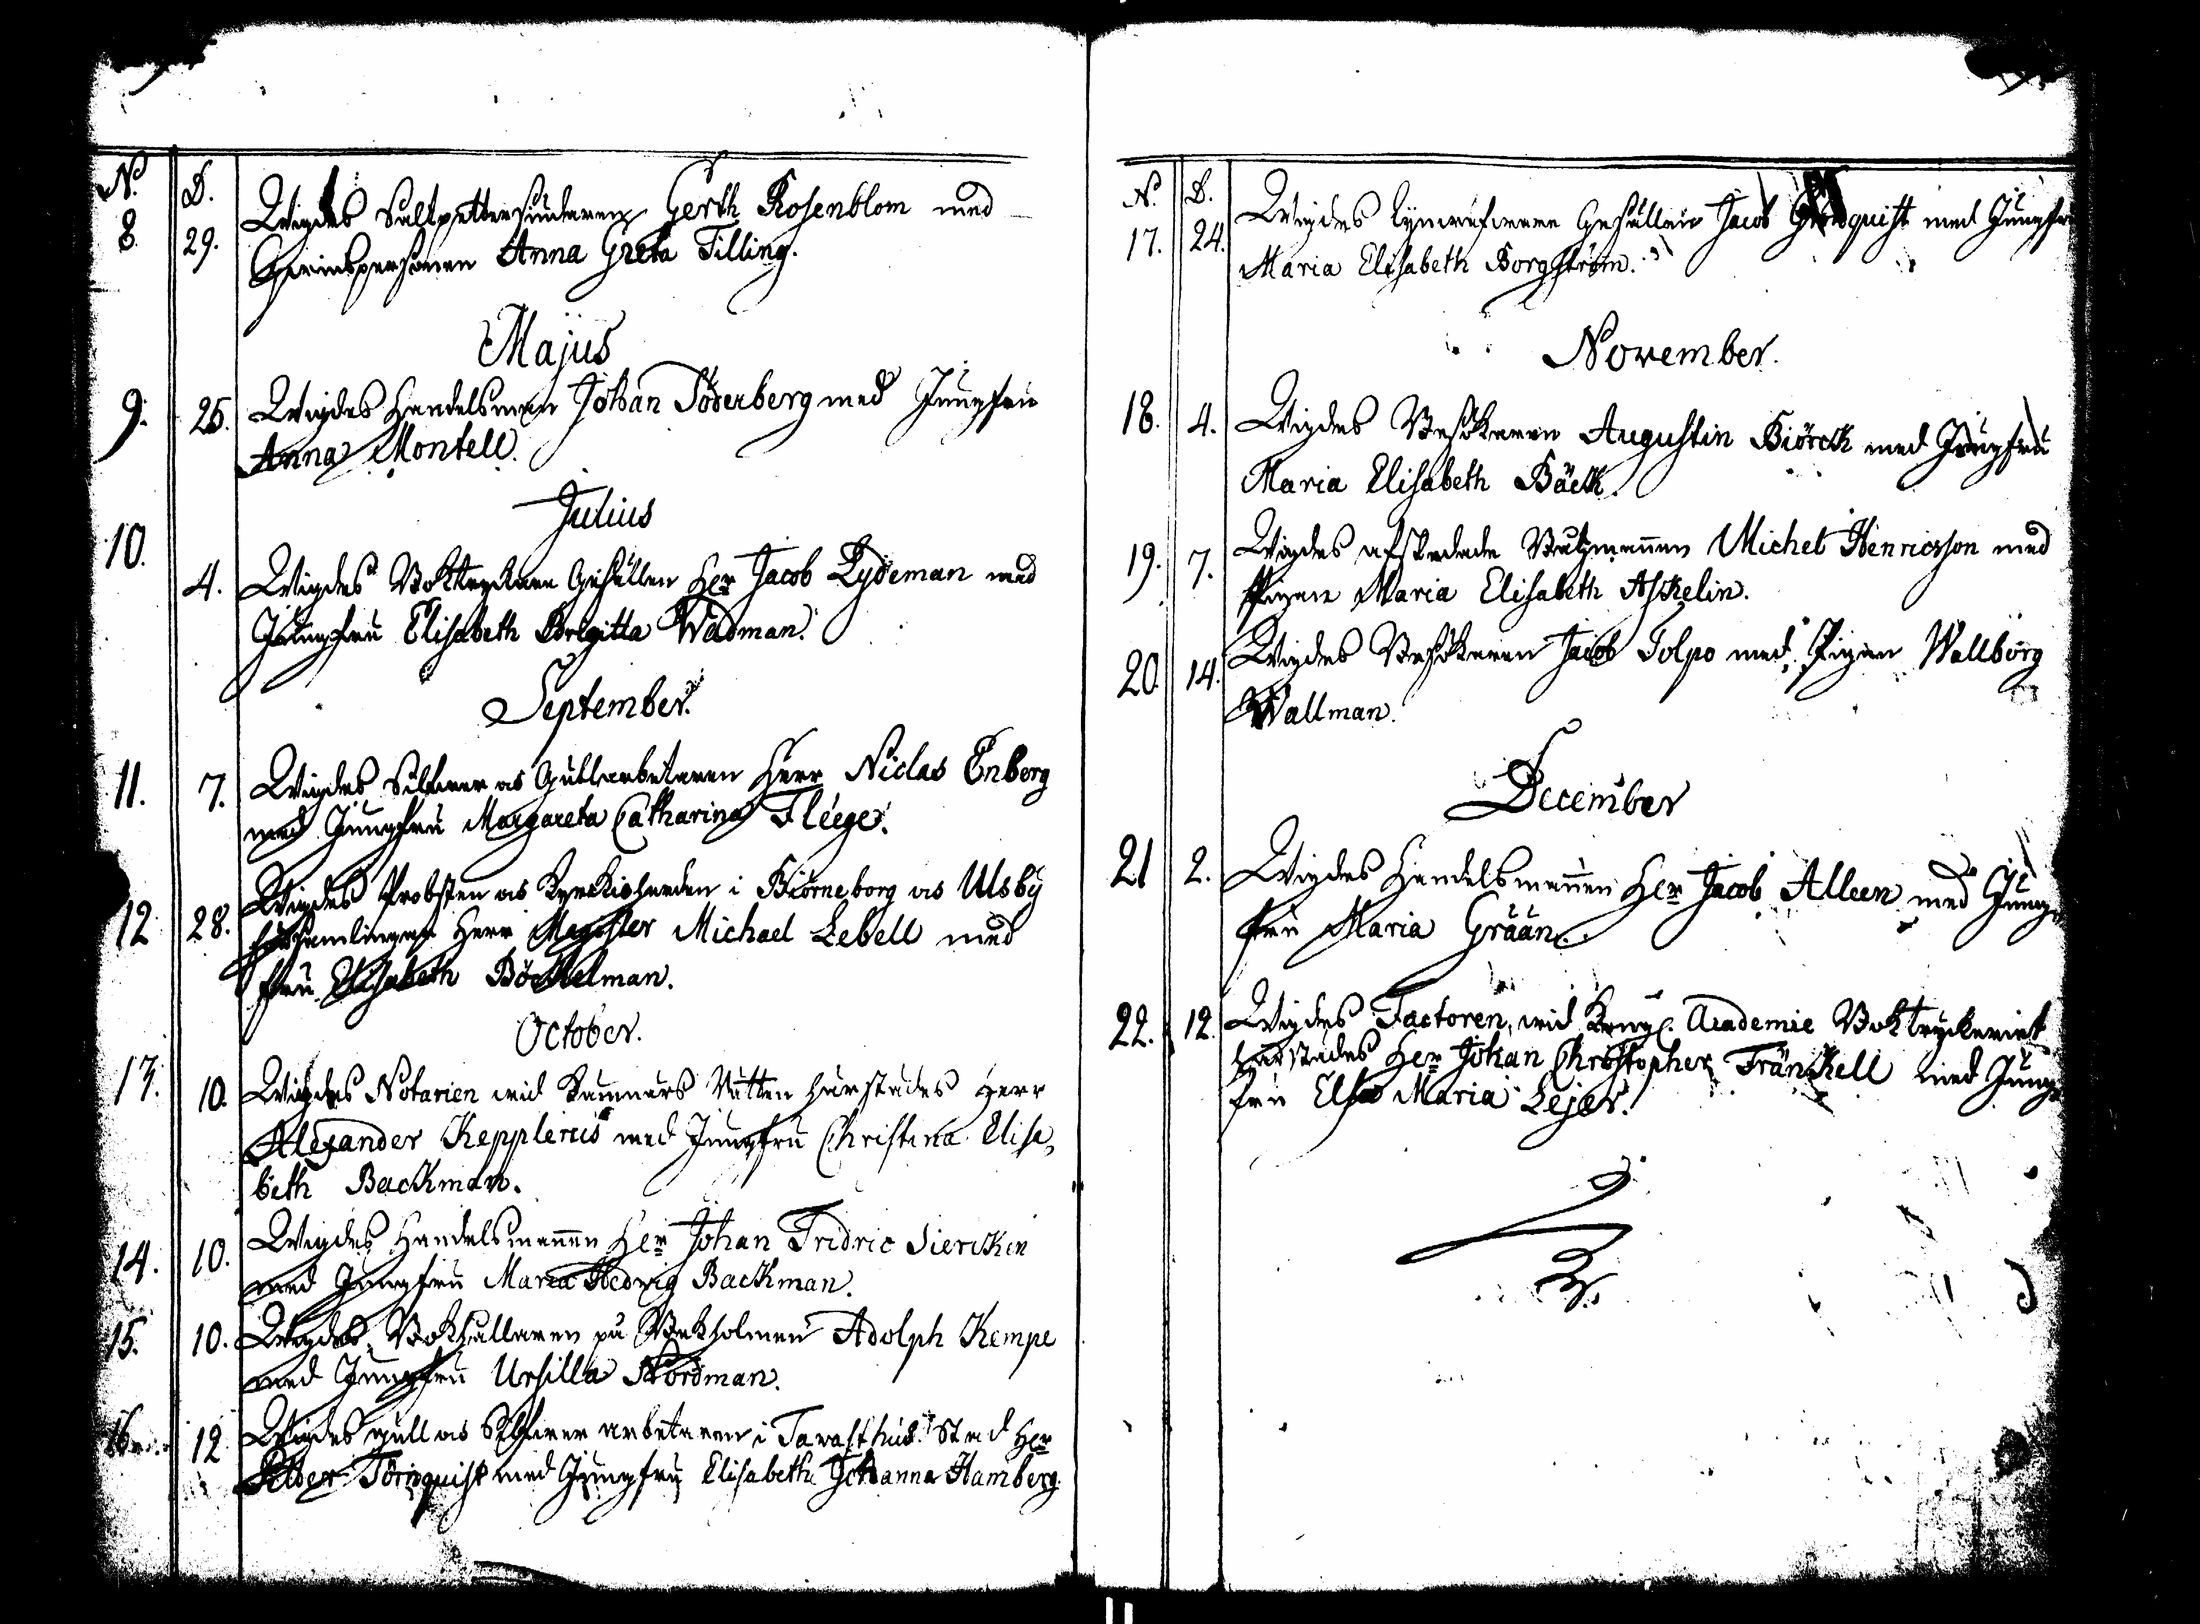 N. D.
8 29. Wigdes Saltpettersiudaren Gerth Rosenblom med
Qwinspersonen Anna Greta Tilling.
Majus
9. 25. Wigdes Handelsman Johan Söderberg med Jungfru
Anna Montell.
Julius
10. 4. Wigdes Boktryckare Gesällen Her Jacob Lydeman med
Jungfru Elisabeth Bregitta Wadman.
September.
11. 7. Wigdes Silfwer os Gullarbetaren Herr Niclas Enberg
med Jungfru Margareta Catharina Fleege.
12 28. Wigdes Probsten os Kyrckioherden i Biörneborg os Ulsby
församlingar Herr Magister Michael Lebell med
fru Elisabeth Böckelman.
October.
13. 10. Wigdes Notarien wid Kämnärs Rätten härstädes Herr
Alexander Kepplerus med Jungfru Christina Elisa,
beth Backman.
14. 10. Wigdes Handelsmannen Her Johan Fridric Siercken
med Jungfru Maria Hedvig Backman.
15. 10. Wigdes Bokhållaren på Beckholmen Adolph Kempe
med Jungfru Ursilla Nordman.
16. 12 Wigdes gull os Silfwer arbetaren i Tavasthus Stad Her
Petter Törnquist med Jungfru Elisabeth Johanna Hamberg.
N. D.
17. 24. Wigdes Gesällen Jacob med Jungfru
Maria Elisabeth Borgström.
November.
18. 4. Wigdes Besökaren Augustin Biörck med Jungfru
Maria Elisabeth Bäck.
19. 7. Wigdes afskedade Båtzmannen Michel Henricsson med
Pigan Maria Elisabeth Askelin.
20. 14. Wigdes Besökaren Jacob Tolpo med Pigan Wallborg
Wallman.
December
21 2. Wigdes Handelsmannen Her Jacob Alleen med Jung,
fru Maria Grään.
22. 12. Wigdes Factoren wid Kongl. Academie Boktryckeriet
härstädes Her Johan Christopher Fränckell med Jung,
fru Elsa Maria Lejer.